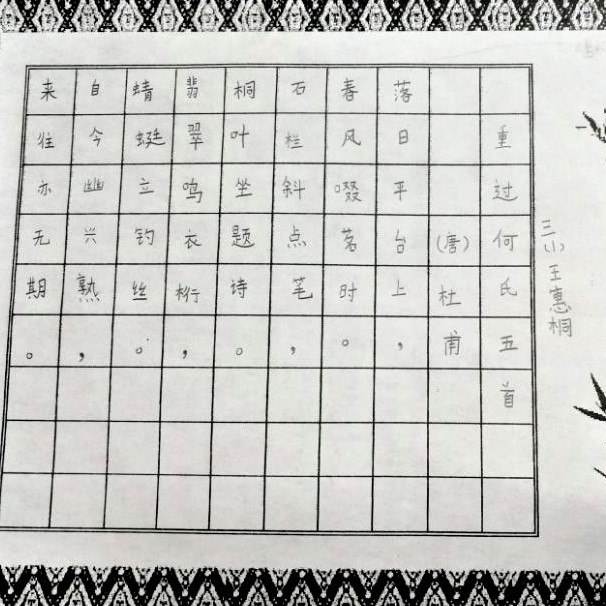 三小 王惠桐
重过何氏五首
(唐)杜甫
落日平台上，
春风啜茗时。
石栏斜点笔，
桐叶坐题诗。
翡翠鸣衣桁，
蜻蜓立钓丝。
自今幽兴熟，
来往亦无期。